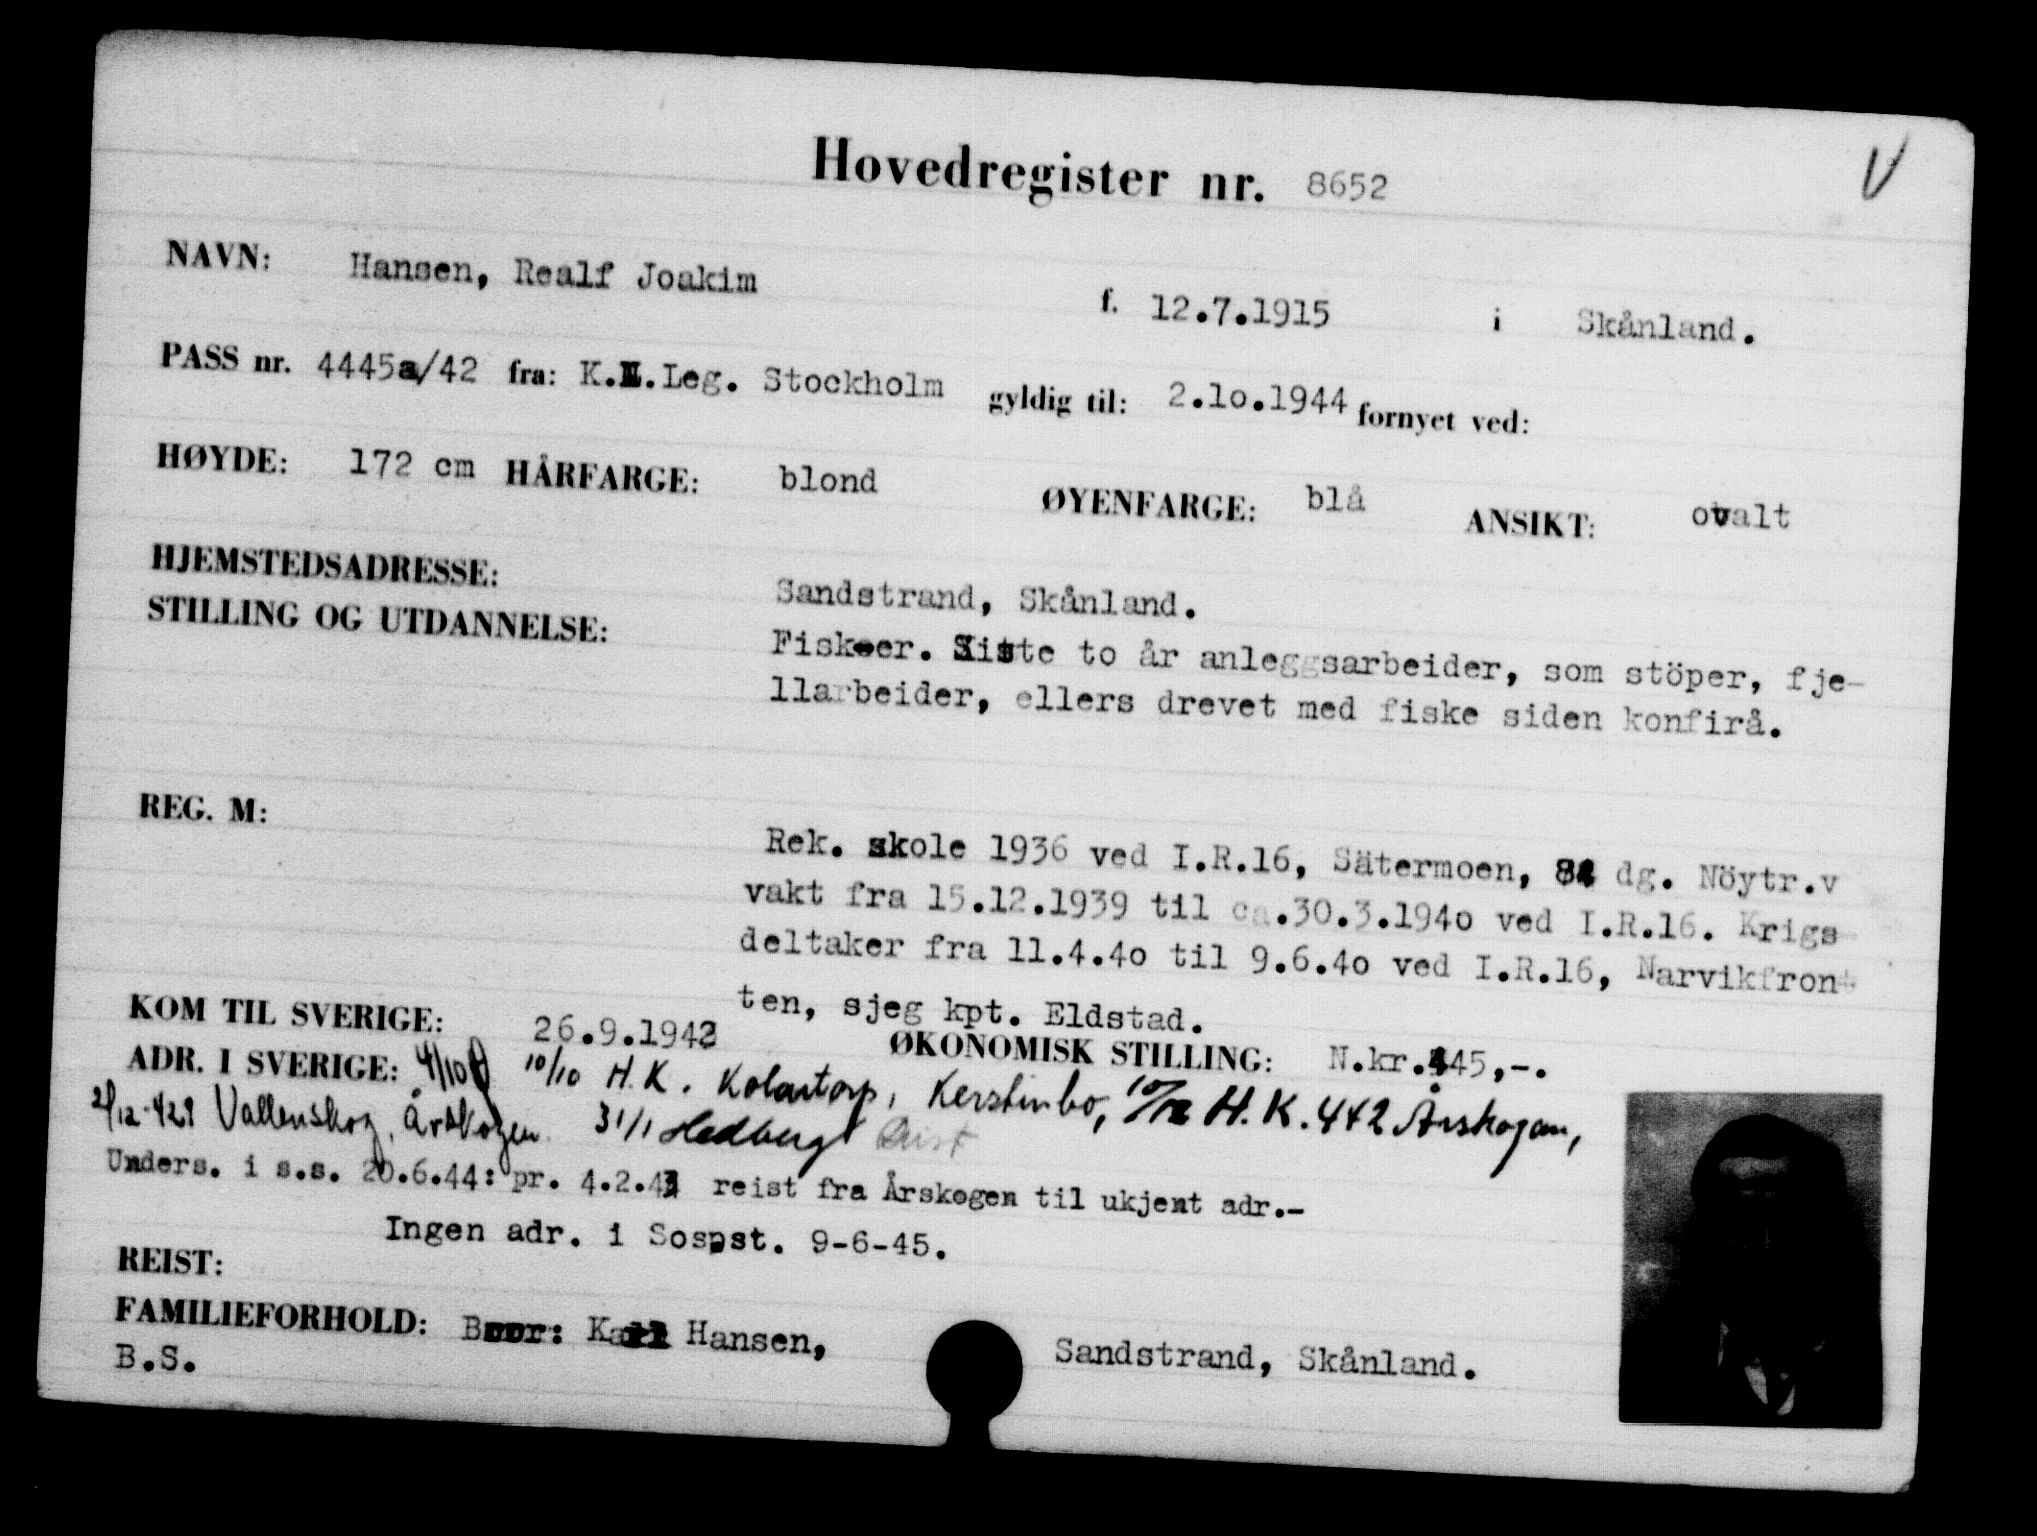 Hovedregister nr. 8652
V
NAVN: Hansen, Realf Joakim f. 12.7.1915 i Skånland.
PASS nr. 4445a/42 fra: K.N.Leg. Stockholm gyldig til: 2.lo.1944 fornyet ved:
HØYDE: 172 cm HÅRFARGE: blond ØYENFARGE: blå ANSIKT: ovalt
HJEMSTEDSADRESSE: Sandstrand, Skånland.
STILLING OG UTDANNELSE: Fisker. Siste to år anleggsarbeider, som stöper, fje-
llarbeider, ellers drevet med fiske siden konfirå.
REG. M: Rek. skole 1936 ved I.R.16, Sätermoen, 84 dg. Nöytr.v
vakt fra 15.12.1939 til ca.30.3.194o ved I.R.16. Krigs
deltaker fra 11.4.4o til 9.6.4o ved I.R.16, Narvikfront
ten, sjeg kpt. Eldstad.
KOM TIL SVERIGE: 26.9.1942 ØKONOMISK STILLING: N.kr.445,-.
ADR. I SVERIGE: 4/10 10/10 H.K. Kolartorp, Kerstinbo, 10/12 H.K. 442 Årskogen,
2/12-429 Vallenskog, Årskogen. 31/1 Hedberg
Unders. i s.s. 20.6.44: pr. 4.2.43 reist fra Årskogen til ukjent adr.-
Ingen adr. i Sospst. 9-6-45.
REIST:
FAMILIEFORHOLD: Bror: Karl Hansen, Sandstrand, Skånland.
B.S.